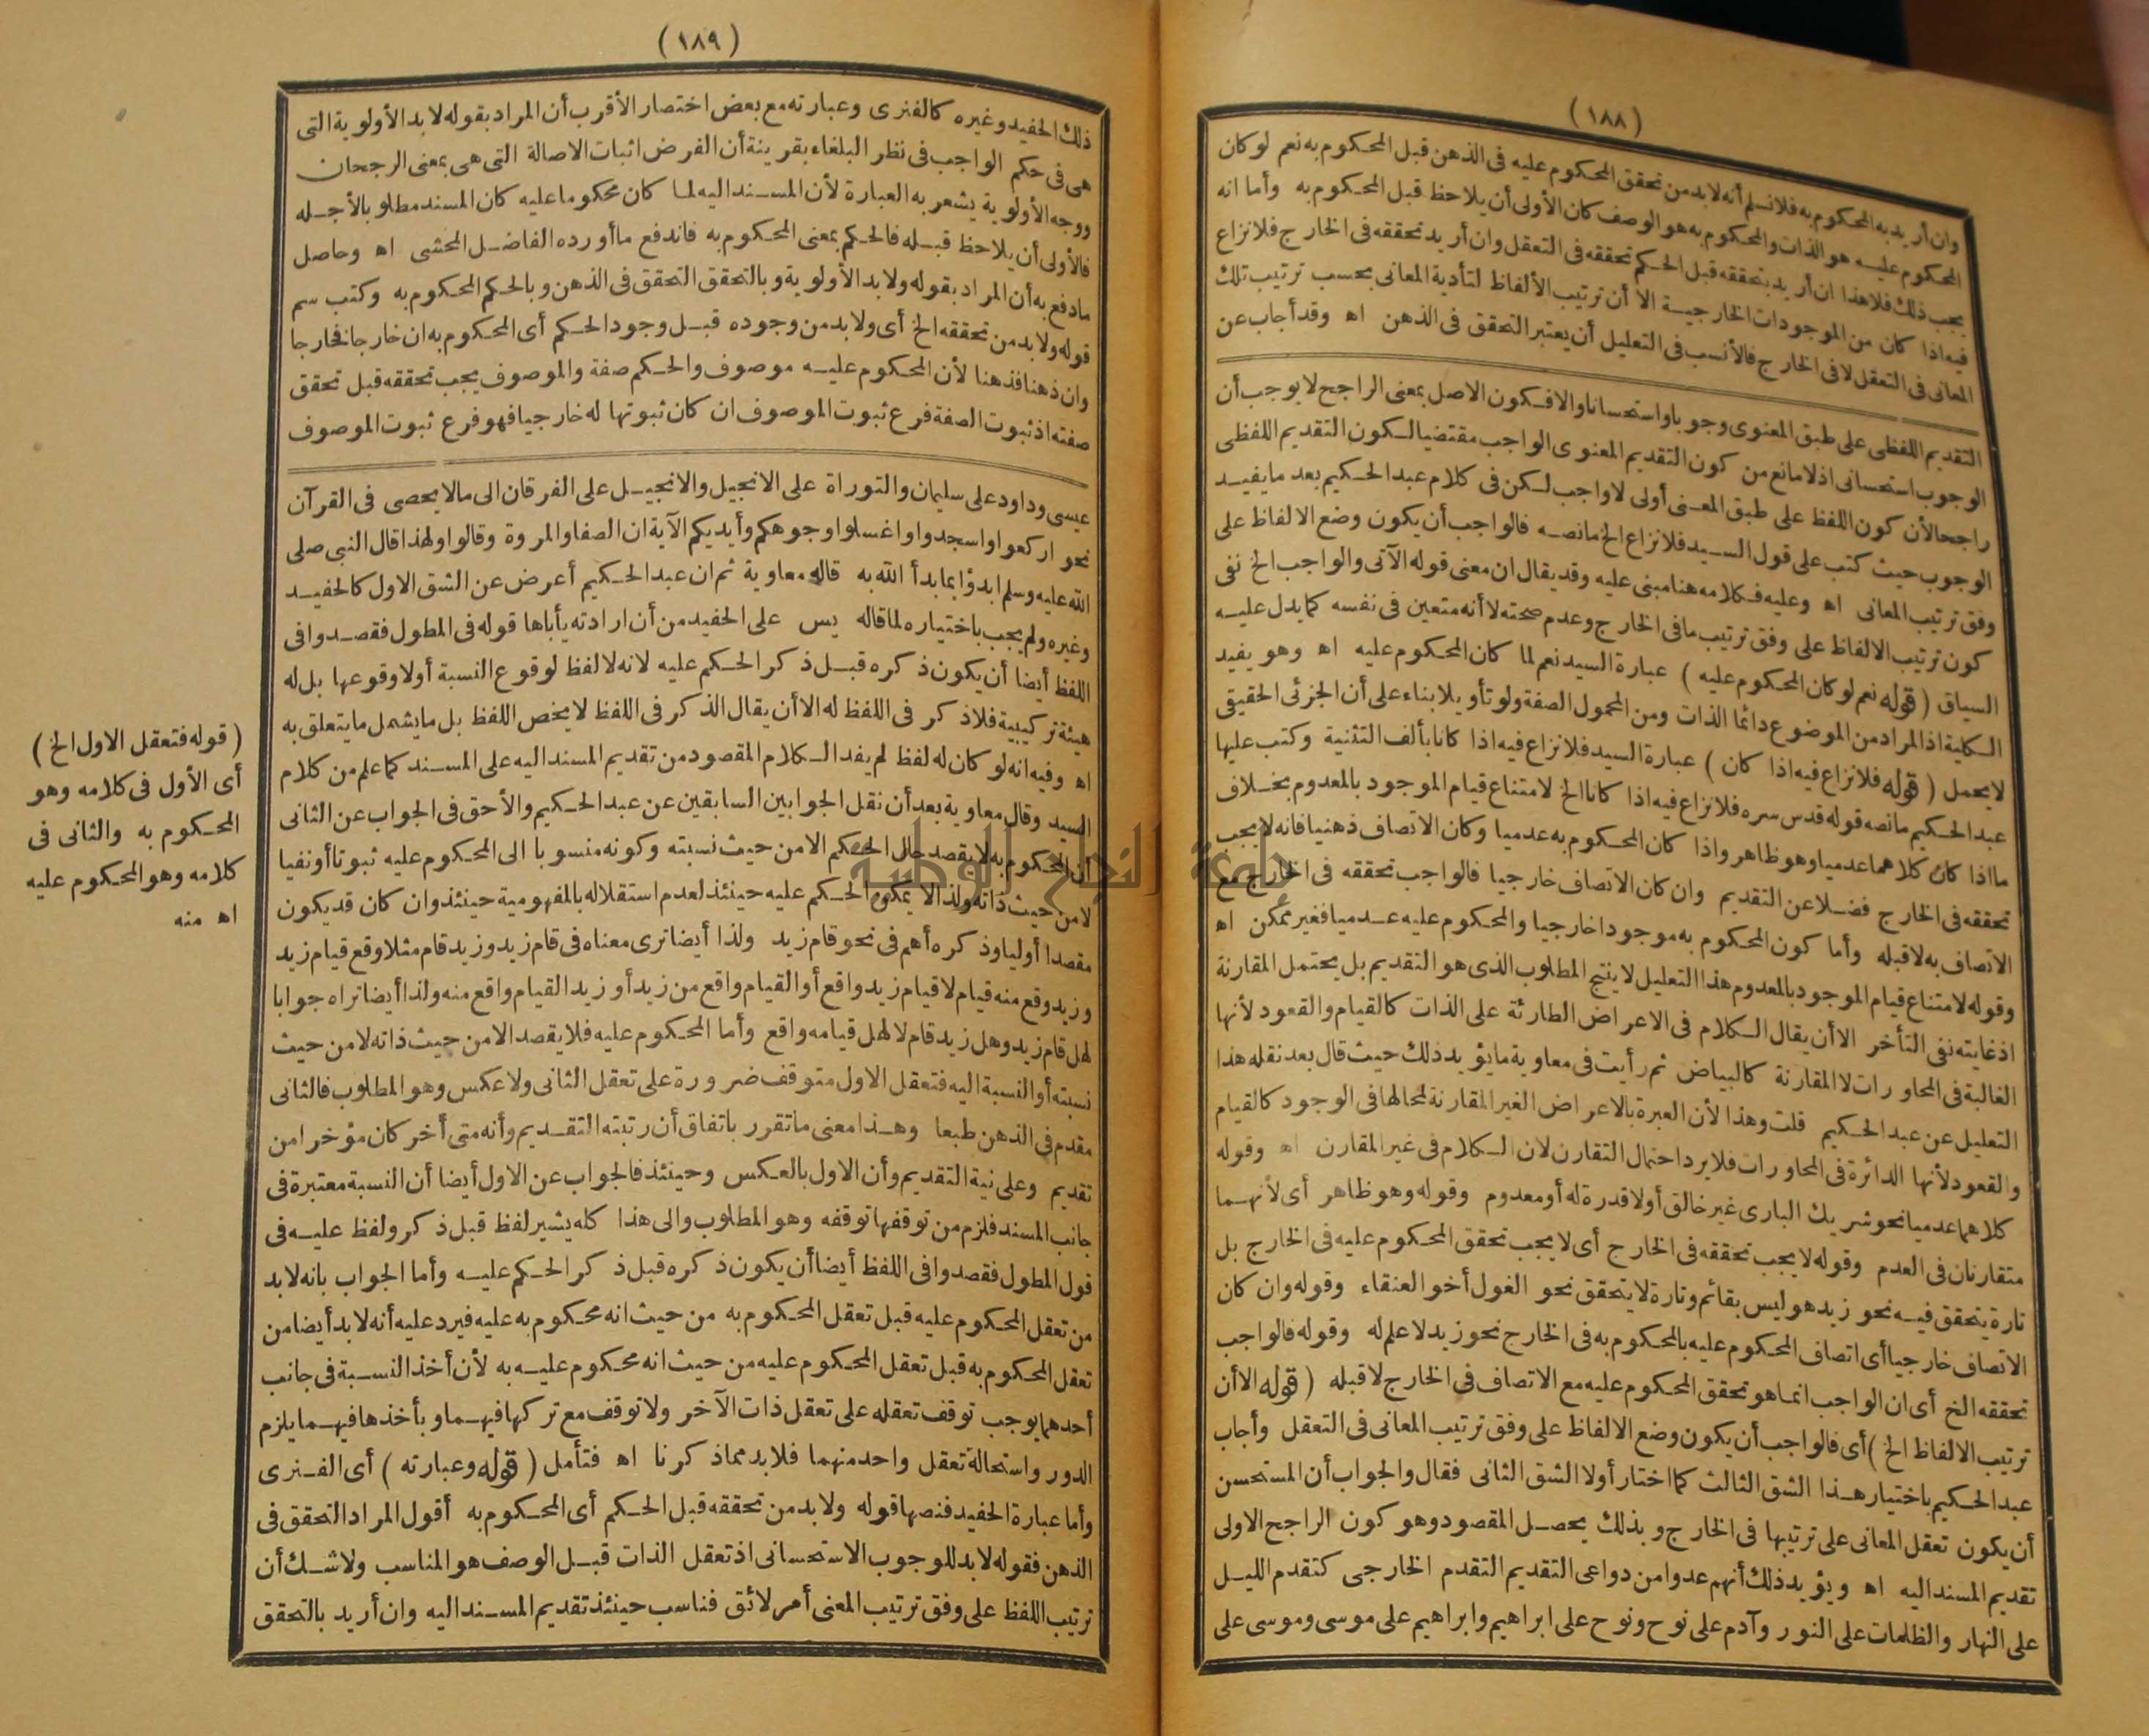 (١٨٨)
وان أريد به المحكوم به فلا نسلم أنه لا بد من تحقق المحكوم عليه فى الذهن قبل المحكوم به نعم لو كان
المحكوم عليه هو الذات والمحكوم به هو الوصف كان الأولى أن يلاحظ قبل المحكوم به وأما انه
يجب ذلك فلا هذا ان أريد بتحققه قبل الحكم تحققه فى التعقل وان أريد تحققه فى الخارج فلا نزاع
فيه اذا كان من الموجودات الخارجية الا أن ترتيب الألفاظ لتأدية المعانى بحسب ترتيب تلك
المعانى فى التعقل لا فى الخارج فالأنسب فى التعليل أن يعتبر التحقق فى الذهن اه وقد أجاب عن
التقديم اللفظى على طبق المعنوى وجوبا واستحسانا والا فكون الاصل بمعنى الراجح لا يوجب أن
الوجوب استحسانى اذ لا مانع من كون التقديم المعنوى الواجب مقتضيا لكون التقديم اللفظى
راجحا لأن كون اللفظ على طبق المعنى أولى لا واجب لكن فى كلام عبد الحكيم بعد ما يفيد
الوجوب حيث كتب على قول السيد فلا نزاع الخ ما نصه فالواجب أن يكون وضع الالفاظ على
وفق ترتيب المعانى اه وعليه فكلامه هنا مبنى عليه وقد يقال ان معنى قوله الآتى والواجب الخ نفى
كون ترتيب الالفاظ على وفق ترتيب ما فى الخارج وعدم صحته لا أنه متعين فى نفسه كما يدل عليه
السياق (قوله نعم لو كان المحكوم عليه) عبارة السيد نعم لما كان المحكوم عليه اه وهو يفيد
الكلية اذ المراد من الموضوع دائما الذات ومن المحمول الصفة ولو تأويلا بناء على أن الجزئى الحقيقى
لا يحمل (قوله فلا نزاع فيه اذا كان) عبارة السيد فلا نزاع فيه اذا كانا بألف التثنية وكتب عليها
عبد الحكيم ما نصه قوله قدس سره فلا نزاع فيه اذا كانا الخ لامتناع قيام الموجود بالمعدوم بخلاف
ما اذا كان كلاهما عدميا وهو ظاهر واذا كان المحكوم به عدميا وكان الاتصاف ذهنيا فانه لا يجب
تحققه فى الخارج فضلا عن التقديم وان كان الاتصاف خارجيا فالواجب تحققه فى الخارج مع
الاتصاف به لا قبله وأما كون المحكوم به موجودا خارجيا والمحكوم عليه عدميا فغير ممكن اه
وقوله لامتناع قيام الموجود بالمعدوم هذا التعليل لا ينتج المطلوب الذى هو التقديم بل يحتمل المقارنة
اذ غايته نفى التأخر الا أن يقال الكلام فى الاعراض الطارئة على الذات كالقيام والقعود لأنها
الغالبة فى المحاورات لا المقارنة كالبياض ثم رأيت فى معاوية ما يؤيد ذلك حيث قال بعد نقله هذا
التعليل عن عبد الحكيم قلت وهذا لأن العبرة بالاعراض الغير المقارنة لمحالها فى الوجود كالقيام
والقعود لأنها الدائرة فى المحاورات فلا يرد احتمال التقارن لان الكلام فى غير المقارن اه وقوله
كلاهما عدميا نحو شريك البارى غير خالق أو لا قدرة له أو معدوم وقوله وهو ظاهر أى لأنهما
متقارنان فى العدم وقوله لا يجب تحققه فى الخارج أى لا يجب تحقق المحكوم عليه فى الخارج بل
تارة يتحقق فيه نحو زيد هو ليس بقائم وتارة لا يتحقق نحو الغول أخو العنقاء وقوله وان كان
الاتصاف خارجيا أى اتصاف المحكوم عليه بالمحكوم به فى الخارج نحو زيد لا علم له وقوله فالواجب
تحققه الخ أى ان الواجب انما هو تحقق المحكوم عليه مع الاتصاف فى الخارج لا قبله (قوله الا أن
ترتيب الالفاظ الخ) أى فالواجب أن يكون وضع الالفاظ على وفق ترتيب المعانى فى التعقل وأجاب
عبد الحكيم باختيار هذا الشق الثالث كما اختار أولا الشق الثانى فقال والجواب أن المستحسن
أن يكون تعقل المعانى على ترتيبها فى الخارج وبذلك يحصل المقصود وهو كون الراجح الاولى
تقديم المسند اليه اه ويؤيد ذلك أنهم عدوا من دواعى التقديم التقدم الخارجى كتقدم الليل
على النهار والظلمات على النور وآدم على نوح ونوح على ابراهيم وابراهيم على موسى وموسى على
(١٨٩)
ذلك الحفيد وغيره كالفنرى وعبارته مع بعض اختصار الأقرب أن المراد بقوله لا بد الأولوية التى
هى فى حكم الواجب فى نظر البلغاء بقرينة أن الغرض اثبات الاصالة التى هى بمعنى الرجحان
ووجه الأولوية يشعر به العبارة لأن المسند اليه لما كان محكوما عليه كان المسند مطلوبا لأجله
فالأولى أن يلاحظ قبله فالحكم بمعنى المحكوم به فاندفع ما أورده الفاضل المحشى اه وحاصل
ما دفع به أن المراد بقوله ولا بد الأولوية وبالتحقق التحقق فى الذهن وبالحكم المحكوم به وكتب سم
قوله ولا بد من تحققه الخ أى ولا بد من وجوده قبل وجود الحكم أى المحكوم به ان خارجا فخارجا
وان ذهنا فذهنا لأن المحكوم عليه موصوف والحكم صفة والموصوف يجب تحققه قبل تحقق
صفته اذ ثبوت الصفة فرع ثبوت الموصوف ان كان ثبوتها له خارجيا فهو فرع ثبوت الموصوف
عيسى وداود على سليمان والتوراة على الانجيل والانجيل على الفرقان الى ما لا يحصى فى القرآن
نحو اركعوا واسجدوا واغسلوا وجوهكم وأيديكم الآية ان الصفا والمروة وقالوا ولهذا قال النبى صلى
الله عليه وسلم ابدؤا بما بدأ الله به قاله معاوية ثم ان عبد الحكيم أعرض عن الشق الاول كالحفيد
وغيره ولم يجب باختياره لما قاله يس على الحفيد من أن ارادته يأباها قوله فى المطول فقصدوا فى
اللفظ أيضا أن يكون ذكره قبل ذكر الحكم عليه لانه لا لفظ لوقوع النسبة أولا وقوعها بل له
هيئة تركيبية فلا ذكر فى اللفظ له الا أن يقال الذكر فى اللفظ لا يخص اللفظ بل ما يشمل ما يتعلق به
اه وفيه انه لو كان له لفظ لم يفد الكلام المقصود من تقديم المسند اليه على المسند كما علم من كلام
السيد وقال معاوية بعد أن نقل الجوابين السابقين عن عبد الحكيم والأحق فى الجواب عن الثانى
أن المحكوم به لا يقصد حال الحكم الا من حيث نسبته وكونه منسوبا الى المحكوم عليه ثبوتا أو نفيا
لا من حيث ذاته ولذا لا يمكن الحكم عليه حينئذ لعدم استقلاله بالمفهومية حينئذ وان كان قد يكون
مقصدا أوليا وذكره أهم فى نحو قام زيد ولذا أيضا ترى معناه فى قام زيد وزيد قام مثلا وقع قيام زيد
وزيد وقع منه قيام لا قيام زيد واقع أو القيام واقع من زيد أو زيد القيام واقع منه ولذا أيضا تراه جوابا
لهل قام زيد وهل زيد قام لا لهل قيامه واقع وأما المحكوم عليه فلا يقصد الا من حيث ذاته لا من حيث
نسبته أو النسبة اليه فتعقل الاول متوقف ضرورة على تعقل الثانى ولا عكس وهو المطلوب فالثانى
مقدم فى الذهن طبعا وهذا معنى ما تقرر باتفاق أن رتبته التقديم وأنه متى أخر كان مؤخرا من
تقديم وعلى نية التقديم وأن الاول بالعكس وحينئذ فالجواب عن الاول أيضا أن النسبة معتبرة فى
جانب المسند فلزم من توقفها توقفه وهو المطلوب والى هذا كله يشير لفظ قبل ذكر ولفظ عليه فى
قول المطول فقصدوا فى اللفظ أيضا أن يكون ذكره قبل ذكر الحكم عليه وأما الجواب بانه لا بد
من تعقل المحكوم عليه قبل تعقل المحكوم به من حيث انه محكوم به عليه فيرد عليه أنه لا بد أيضا من
تعقل المحكوم به قبل تعقل المحكوم عليه من حيث انه محكوم عليه به لأن أخذ النسبة فى جانب
أحدهما يوجب توقف تعقله على تعقل ذات الآخر ولا توقف مع تركها فيهما وبأخذها فيهما يلزم
الدور واستحالة تعقل واحد منهما فلا بد مما ذكرنا اه فتأمل (قوله وعبارته) أى الفنرى
وأما عبارة الحفيد فنصها قوله ولا بد من تحققه قبل الحكم أى المحكوم به أقول المراد التحقق فى
الذهن فقوله لا بد للوجوب الاستحسانى اذ تعقل الذات قبل الوصف هو المناسب ولا شك أن
ترتيب اللفظ على وفق ترتيب المعنى أمر لائق فناسب حينئذ تقديم المسند اليه وان أريد بالتحقق
(قوله فتعقل الاول الخ)
أى الأول فى كلامه وهو
المحكوم به والثانى فى
كلامه وهو المحكوم عليه
اه منه
جامعة النجاح الوطنية